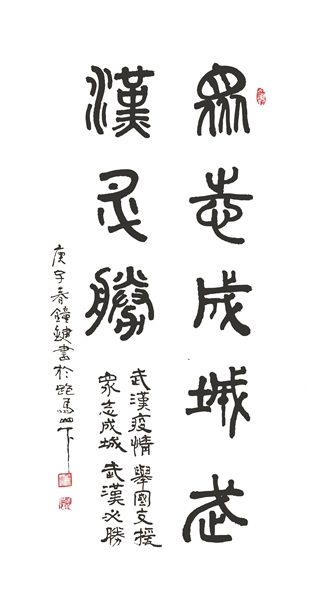 眾志成城武
漢必勝
武漢疫情舉國支援
眾志成城武漢必勝
庚子春鐘鍵書於跑馬山下